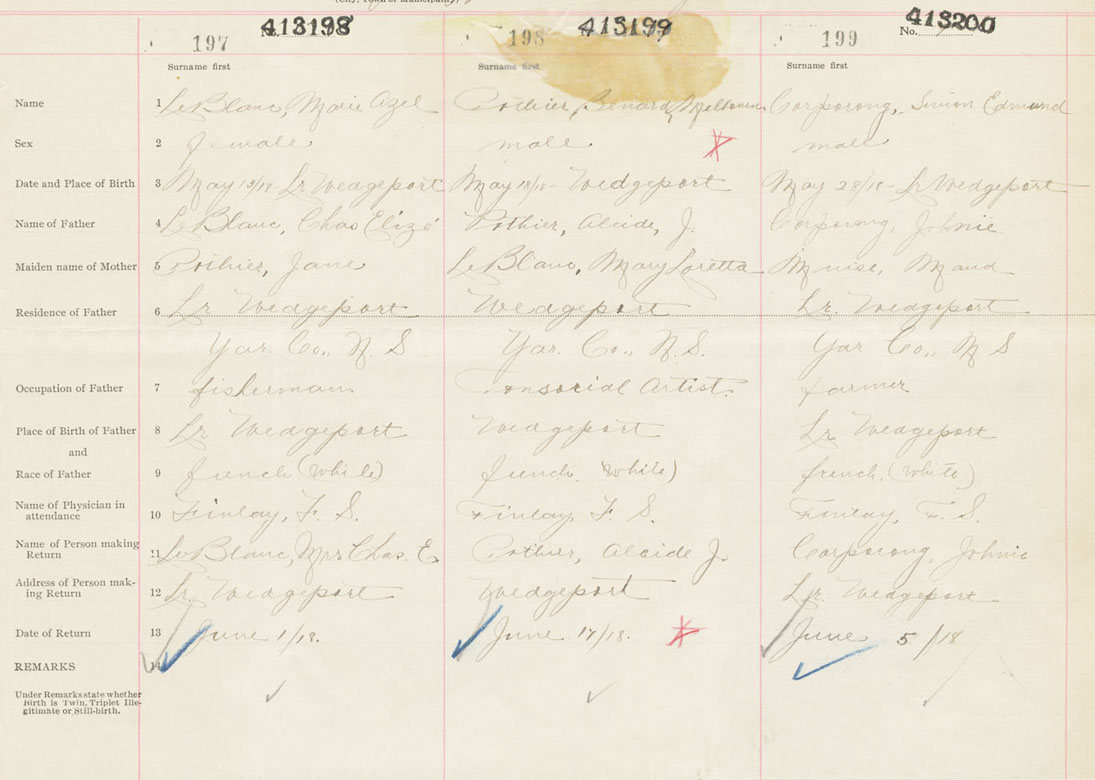 (City, Town or Municipality)
413198 413199 413200
197 198 No. 199
Surname first Surname first Surname first
Name 1 LeBlanc, Marie Azel Pothier, Benard Corporong, Simon Edmund
Sex 2 female male male
Date and Place of Birth 3 May 19/18 - Lr Wedgeport May 18/18 - Wedgeport May 28/18 - Lr Wedgeport
Name of Father 4 LeBlanc, Chas Elizé Pothier, Alcide, J. Corporong, Johnie
Maiden name of Mother 5 Pothier, Jane LeBlanc, Mary Loretta Muise, Maud
Residence of Father 6 Lr. Wedgeport Wedgeport Lr. Wedgeport
Yar. Co., N. S Yar. Co., N. S. Yar Co., N S
Occupation of Father 7 fisherman Tonsorial Artist. farmer
Place of Birth of Father 8 Lr Wedgeport Wedgeport Lr Wedgeport
and
Race of Father 9 french (white) french (white) french. (white)
Name of Physician in
attendance 10 Finlay, F. S. Finlay, F. S. Finlay, F. S.
Name of Person making
Return 11 LeBlanc, Mrs Chas. E Pothier, Alcide J. Corporong, Johnie
Address of Person mak-
ing Return 12 Lr. Wedgeport Wedgeport Lr. Wedgeport
Date of Return 13 June 1/18. June 17/18. June 5/18
REMARKS 14
Under Remarks state whether
Birth is Twin, Triplet Ille-
gitimate or Still-birth.